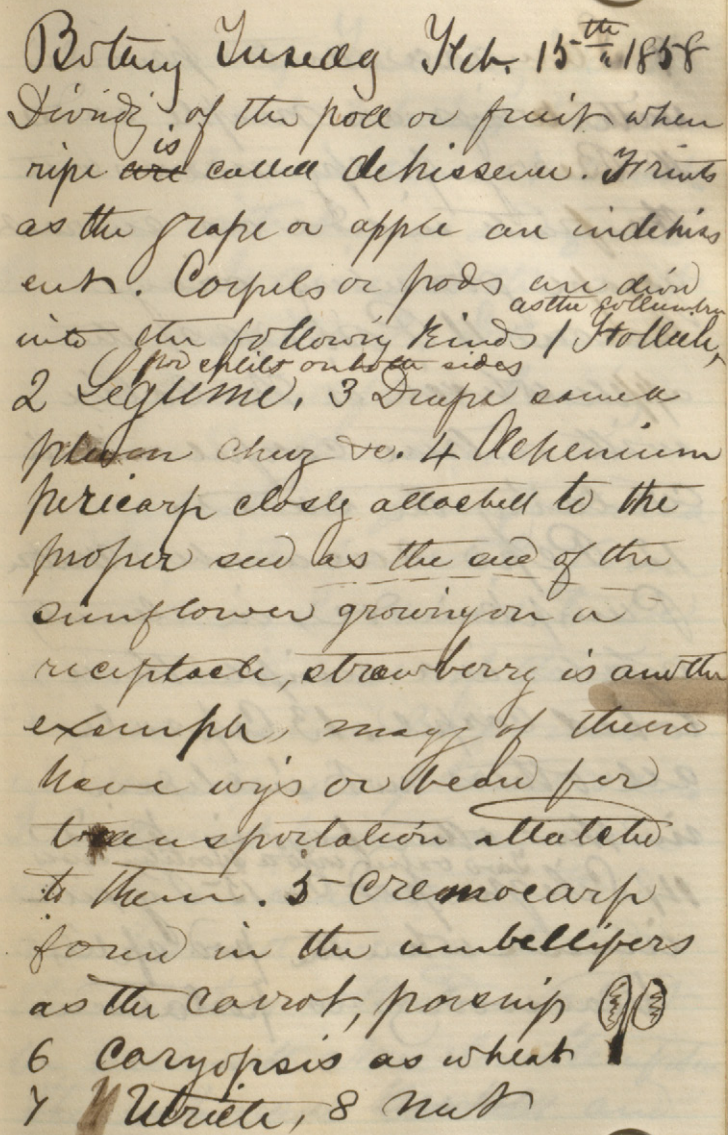 Botany Tuesday Feb. 15th 1858
Dividg of the pod or fruit when
is
ripe are called dehiscence. Fruits
as the grape or apple are indehis
ent. Carpels or pods are divd
as the collumbin
into the following kinds 1 Follicle,
pod splits on both sides
2 Legume, 3 Drupe
plum chery &c. 4 Achenium
pericarp closly attached to the
proper seed as the seed of the
sunflower growing on a
receptacle, strawberry is another
example, many of them
have wigs or beard for
transportation attatched
to them. 5 Cremocarp
found in the umbellifers
as the carrot, parsnip
6 Caryopsis as wheat
7 Utricle, 8 nut